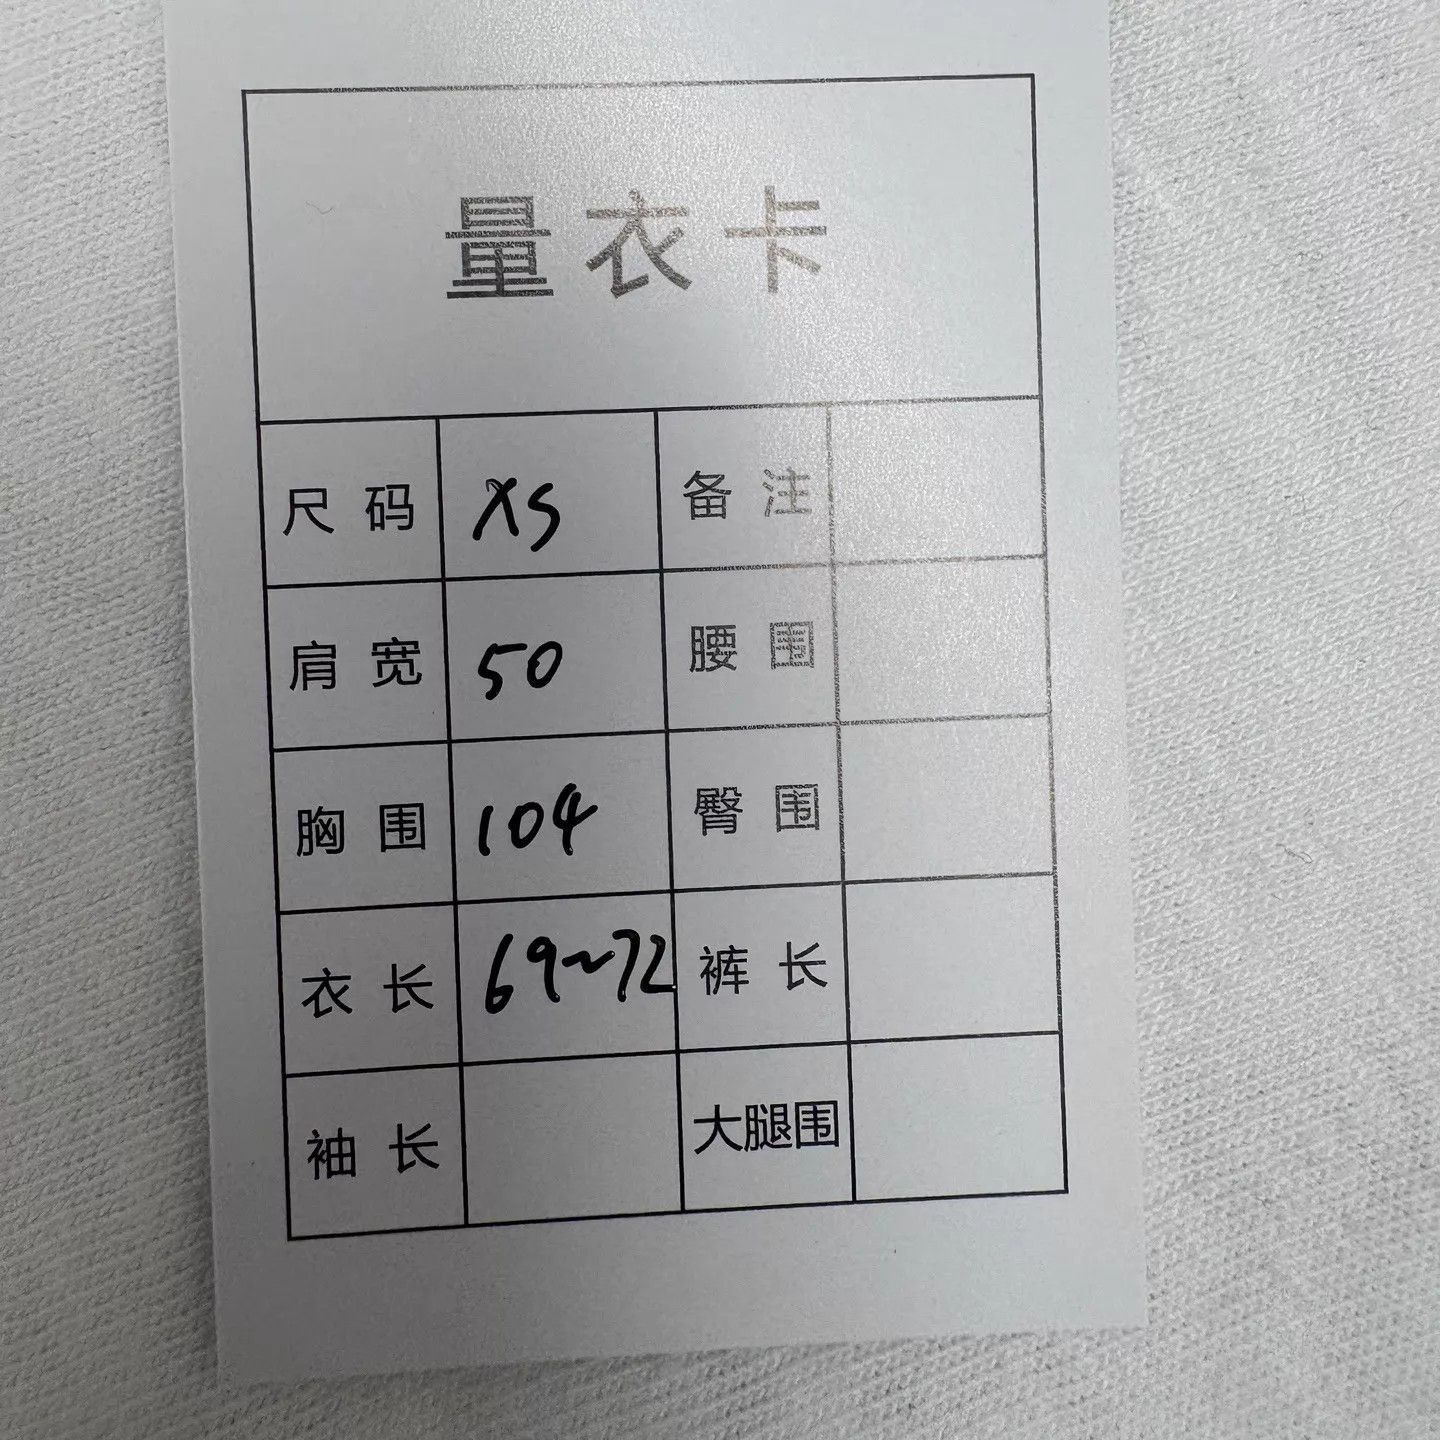 量衣卡
尺码 XS 备注
肩宽 50 腰围
胸围 104 臀围
衣长 69~72 裤长
袖长 大腿围